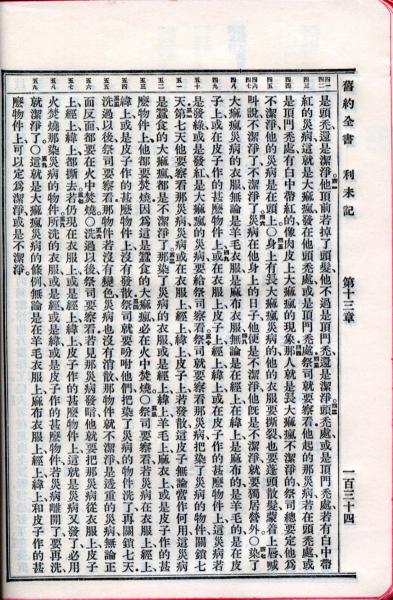 舊約全書 利未記 第十三章 一百三十四
是頭禿還是潔淨他頂前若掉了頭髮他不過是頂門禿還是潔淨頭禿處或是頂門禿處若有白中帶
紅的災病這就是大痲瘋發在他頭禿處或是頂門禿處祭司就要察看他起的那災病若在頭禿處或
是頂門禿處有白中帶紅的像肉皮上大痲瘋的現象那人就是長大痲瘋不潔淨的祭司總要定他為
不潔淨他的災病是在頭上○身上有長大痲瘋災病的他的衣服要撕裂也要蓬頭散髮蒙着上唇喊
叫說不潔淨了不潔淨了災病在他身上的日子他便是不潔淨他既是不潔淨就要獨居營外○染了
大痲瘋災病的衣服無論是羊毛衣服是麻布衣服無論是在經上在緯上是麻布的是羊毛的是在皮
子上或在皮子作的甚麼物件上或在衣服上皮子上經上緯上或在皮子作的甚麼物件上這災病若
是發綠或是發紅是大痲瘋的災病要給祭司察看祭司就要察看那災病把染了災病的物件關鎖七
天第七天他要察看那災病災病或在衣服上經上緯上皮子上若發散這皮子無論當作何用這災病
是蠶食的大痲瘋都是不潔淨了那染了災病的衣服或是經上緯上羊毛上麻衣上或是皮子作的甚
麼物件上他都要焚燒因為這是蠶食的大痲瘋必在火中焚燒○祭司要察看若災病在衣服上經上
緯上或是皮子作的甚麼物件上沒有發散祭司就要吩咐他們把染了災病的物件洗了再關鎖七天
洗過以後祭司要察看那物件若沒有變色災病也沒有消散那物件就不潔淨是透重的災病無論正
面反面都要在火中焚燒○洗過以後祭司要察看若見那災病發暗他就要把那災病從衣服上皮子
上經上緯上都撕去若仍現在衣服上或是經上緯上皮子作的甚麼物件上這就是災病又發了必用
火焚燒那染災病的物件所洗的衣服或是經或是緯或是皮子作的甚麼物件若災病離開了要再洗
就潔淨了○這就是大痲瘋災病的條例無論是在羊毛衣服上麻布衣服上經上緯上和皮子作的甚
麼物件上可以定為潔淨或是不潔淨